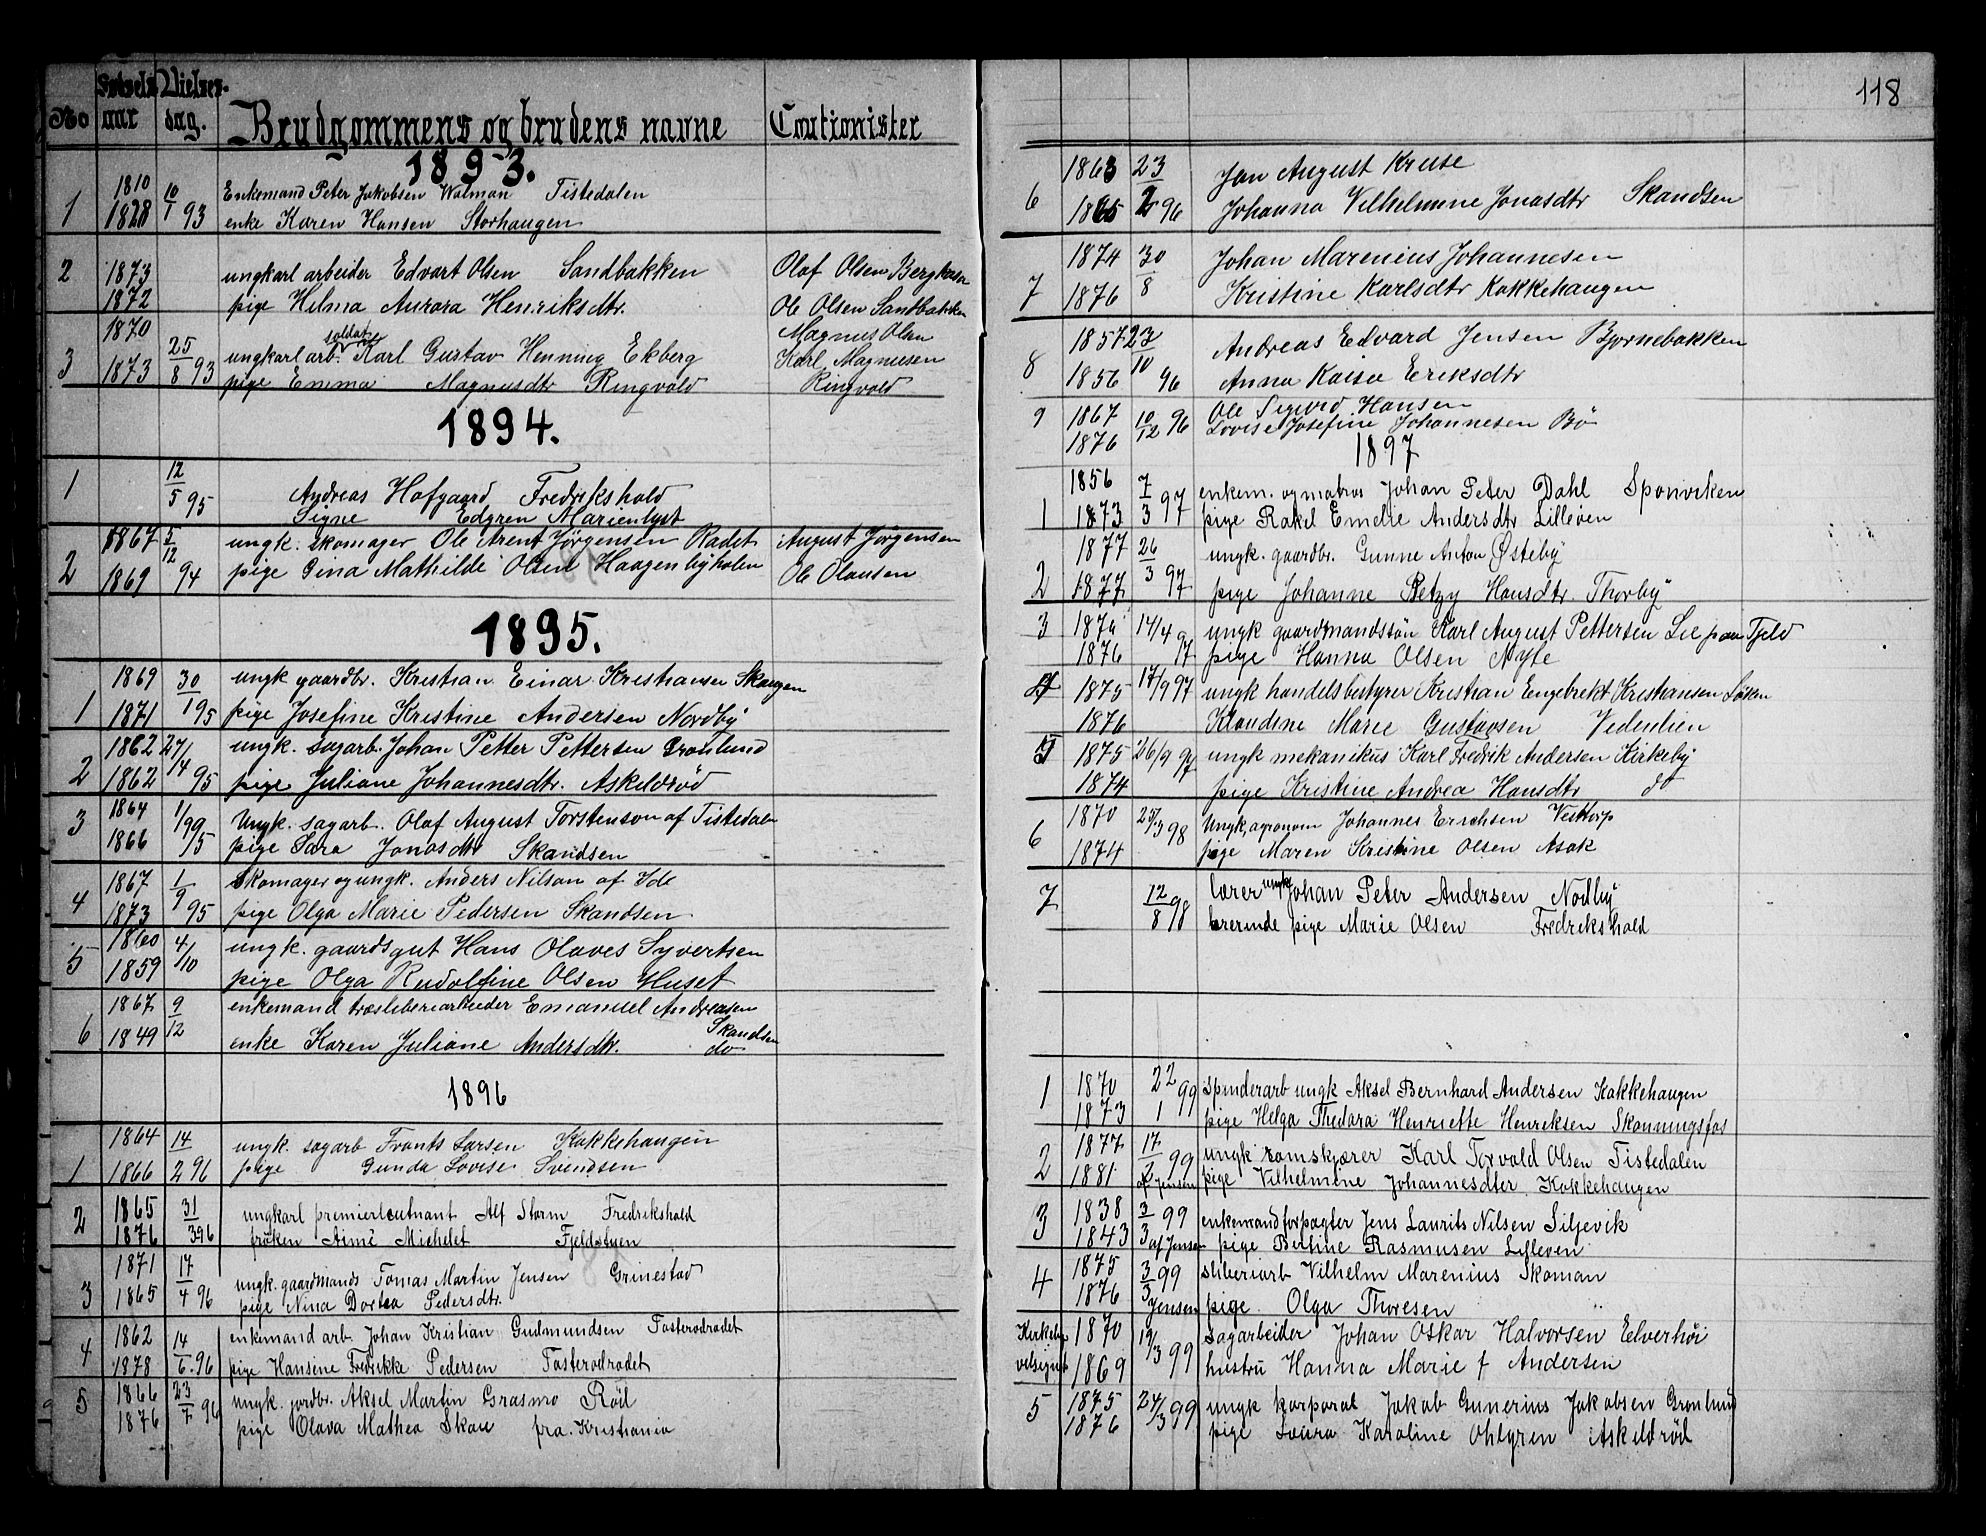 No Fødsels aar Vielses dag. Brudgommens og brudens navne Cautionister
1893.
1 1810 10/1 93 Enkemand Peter Jakobsen Walman Tistedalen
1828 enke Karen Hansen Storhaugen
2 1873 ungkarl arbeider Edvart Olsen Sandbakken Olaf Olsen
1872 pige Hilma Aurora Henriksdtr. Ole Olsen Sandbakken
3 1870 25/8 93 ungkarl arb. soldat Karl Gustav Henning Ekberg Magnus Olsen
1873 pige Emma Magnusdtr Ringvold Karl Magnusen
Ringvold
1894.
1 12/5 95 Andreas Hofgaard Fredrikshald
Signe Edgren Marienlyst
2 1867 5/12 94 ungk. skomager Ole Arent Jørgensen Rødet August Jørgensen
1869 pige Gina Mathilde Olsen Haagenbyholen Ole Olausen
1895.
1 1869 30/1 95 ungk gaardbr. Kristian Einar Kristiansen Skaugen
1871 pige Josefine Kristine Andersen Nordby
2 1862 27/4 95 ungk. sagarb. Johan Petter Pettersen Grønlund
1862 pige Juliane Johannesdtr. Askeldrød
3 1864 Ungk. sagarb. Olof August Torstenson af Tistedalen
1866 pige Sara Jonasdtr Skandsen
4 1867 1/9 95 Skomager og ungk. Anders Nilson af Ide
1873 pige Olga Marie Pedersen Skandsen
5 1860 4/10 ungk. gaardsgut Hans Olaves Syvertsen
1859 pige Olga Rudolfine Olsen Huset
6 1867 9/12 enkemand træsliberiarbeider Emanuel Andreasen
Skandsen
1849 enke Karen Juliane Andersdtr. do
1896
1 1864 14/2 96 ungk. sagarb Frants Larsen Kokkehaugen
1866 pige Gunda Lovise Svendsen
2 1865 31/3 96 ungkarl premierleutnant Alf Storm Fredrikshald
1871 frøken Aimé Michelet Fjeldstuen
3 1871 17/4 96 ungk. gaardmands Tomas Martin Jensen Grinestad
1865 pige Nina Dortea Pedersdtr.
4 1862 14/6. 96 enkemand arb. Johan Kristian Gudmundsen Fosterødrødet
1878 pige Hansine Fredrikke Pedersen Fosterødrødet
5 1866 23/7 96 ungk. jordbr. Aksel Martin Grasmo Röd
1876 pige Olava Mathea Skau fra Kristiania
118
6 1863 23/2 96 Jon August Kruse
1865 Johanna Vilhelmine Jonasdtr Skandsen
7 1874 30/8 Johan Marenius Johannesen
1876 Kristine Karlsdtr Kokkehaugen
8 1857 23/10 96 Andreas Edvard Jensen Bjørnebakken
1856 Anna Kaisa Eriksdtr
9 1867 10/12 96 Ole Sigurd Hansen
1876 Lovise Josefine Johannesen Bö
1897
1 1856 7/3 97 enkem. og matros Johan Peter Dahl Sponviken
1873 pige Rakel Emelie Andersdtr Lilleøen
2 1877 26/3 97 ungk. gaardbr. Gunne Anton Østeby
1877 pige Johanne Betzy Hansdtr. Thorby
3 1874 14/4 97 ungk gaardmandssön Karl August Pettersen Lie paa Fjeld
1876 pige Hanna Olsen Nyle
4 1875 17/9 97 ungk handelsbestyrer Kristian Engebrekt Kristiansen
1876 Klaudine Marie Gustavsen Vedenlien
5 1875 26/9 97 ungk mekanikus Karl Fredrik Andersen Kirkeby
1874 pige Kristine Andrea Hansdtr do
6 1870 25/3 98 Ungk. agronom Johannes Erichsen Vestorp
1874 pige Maren Kristine Olsen Asak
7 12/8 98 lærer ungk Johan Peter Andersen Nodby
lærerinde pige Marie Olsen Fredrikshald
1 1870 22/1 99 spinderarb ungk Aksel Bernhard Andersen Kokkehaugen
1873 pige Helga Thedora Henriette Henriksen Skonningsfos
2 1877 17/2 99 ungk tomskjærer Karl Torvald Olsen Tistedalen
1881. af Jensen pige Vilhelmine Johannesdter Kokkehaugen
3 1838 3/3 99 enkemand forpagter Jens Laurits Nilsen Siljevik
1843 af Jensen pige Bertine Rasmusen Lilleøen
4 1875 3/3 99 sliberiarb Vilhelm Marenius Skoman
1876 Jensen pige Olga Thoresen
Kirkelig velsignet 1870 19/3 99 sagarbeider Johan Oskar Halvorsen Elverhöi
1869 hustru Hanna Marie f Andersen
5 1875 24/3 99 ungk korporal Jakob Gunerius Jakobsen Grønlund
1876 pige Laura Karoline Ohlgren Askeldröd